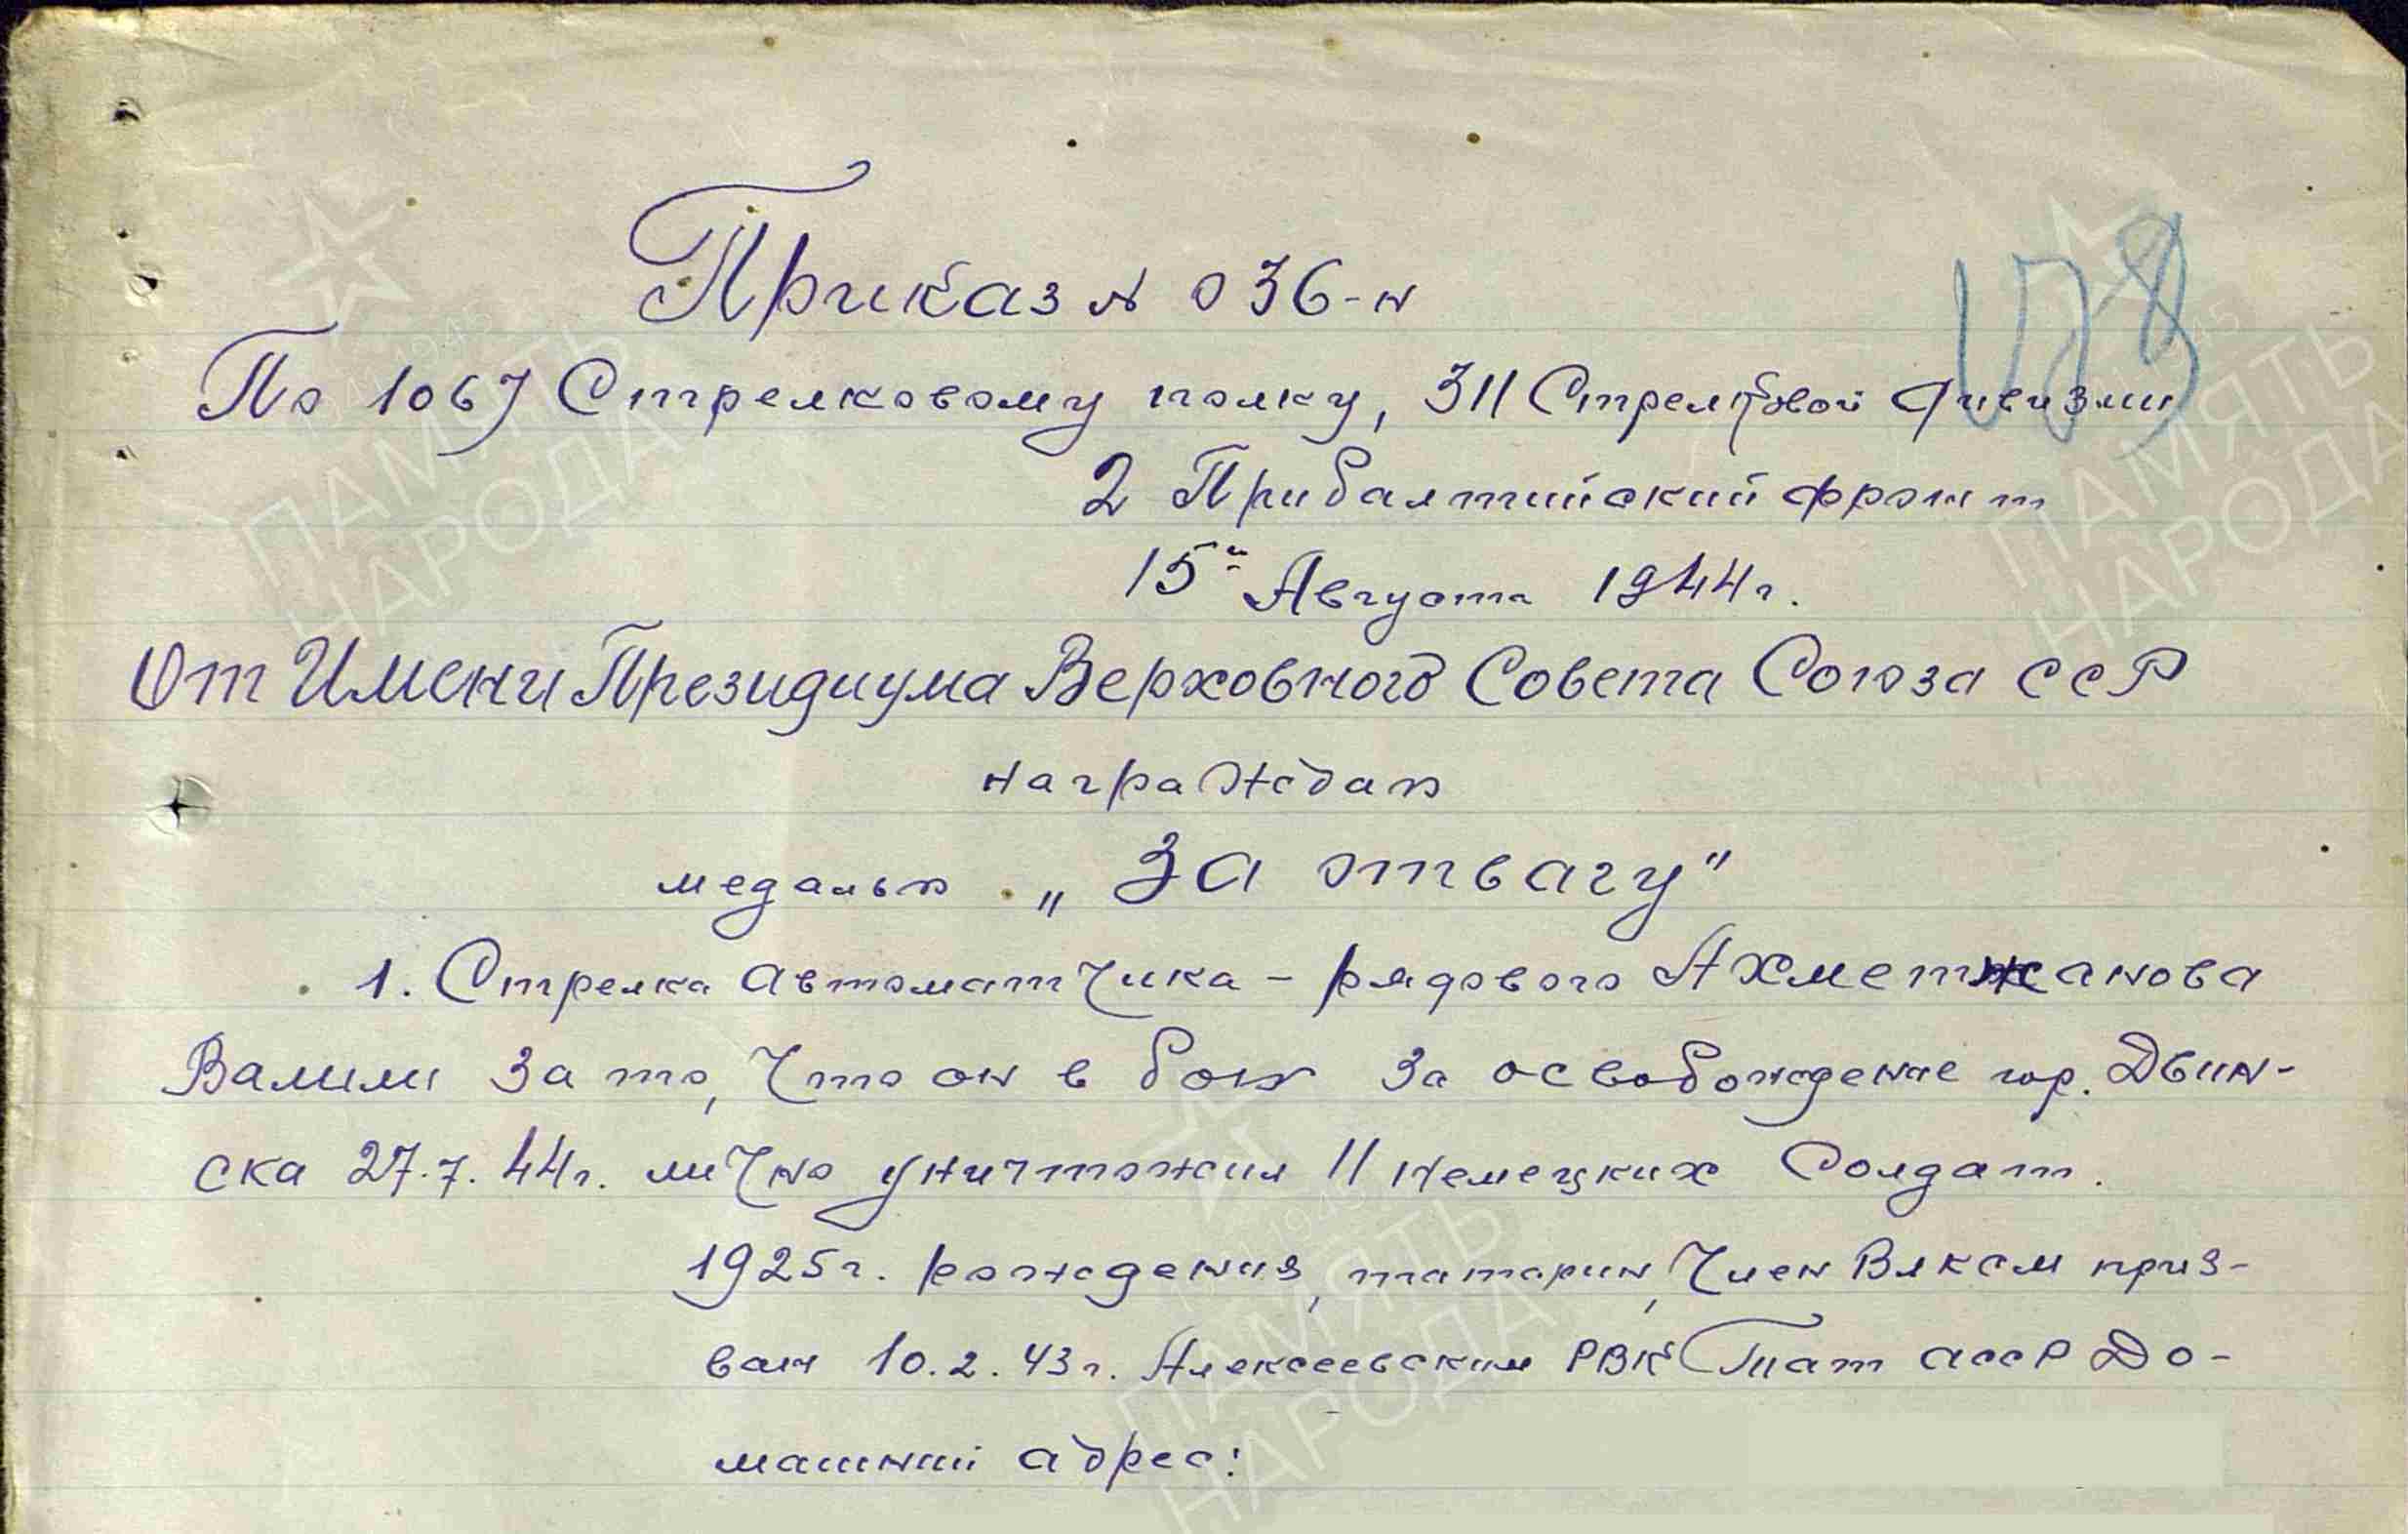 Приказ № 036-н
По 1067 Стрелковому полку, 311 Стрелковой Дивизии
2 Прибалтийский фронт
15го Августа 1944г.
От Имени Президиума Верховного Совета Союза ССР
награждаю
медалью „За отвагу"
1. Стрелка автоматчика – рядового Ахметжанова
за то, что он в боях за освобождение гор. Двин-
ска 27.7.44г. лично уничтожил 11 немецких солдат.
1925г. рождения, татарин, член ВЛКСМ приз-
ван 10.2.43г. Алексеевским РВК Тат АССР До-
машний адрес:
ПАМЯТЬ
НАРОДА
ПАМЯТЬ
НАРОДА
ПАМЯТЬ
НАРОДА
ПАМЯТЬ
НАРОДА